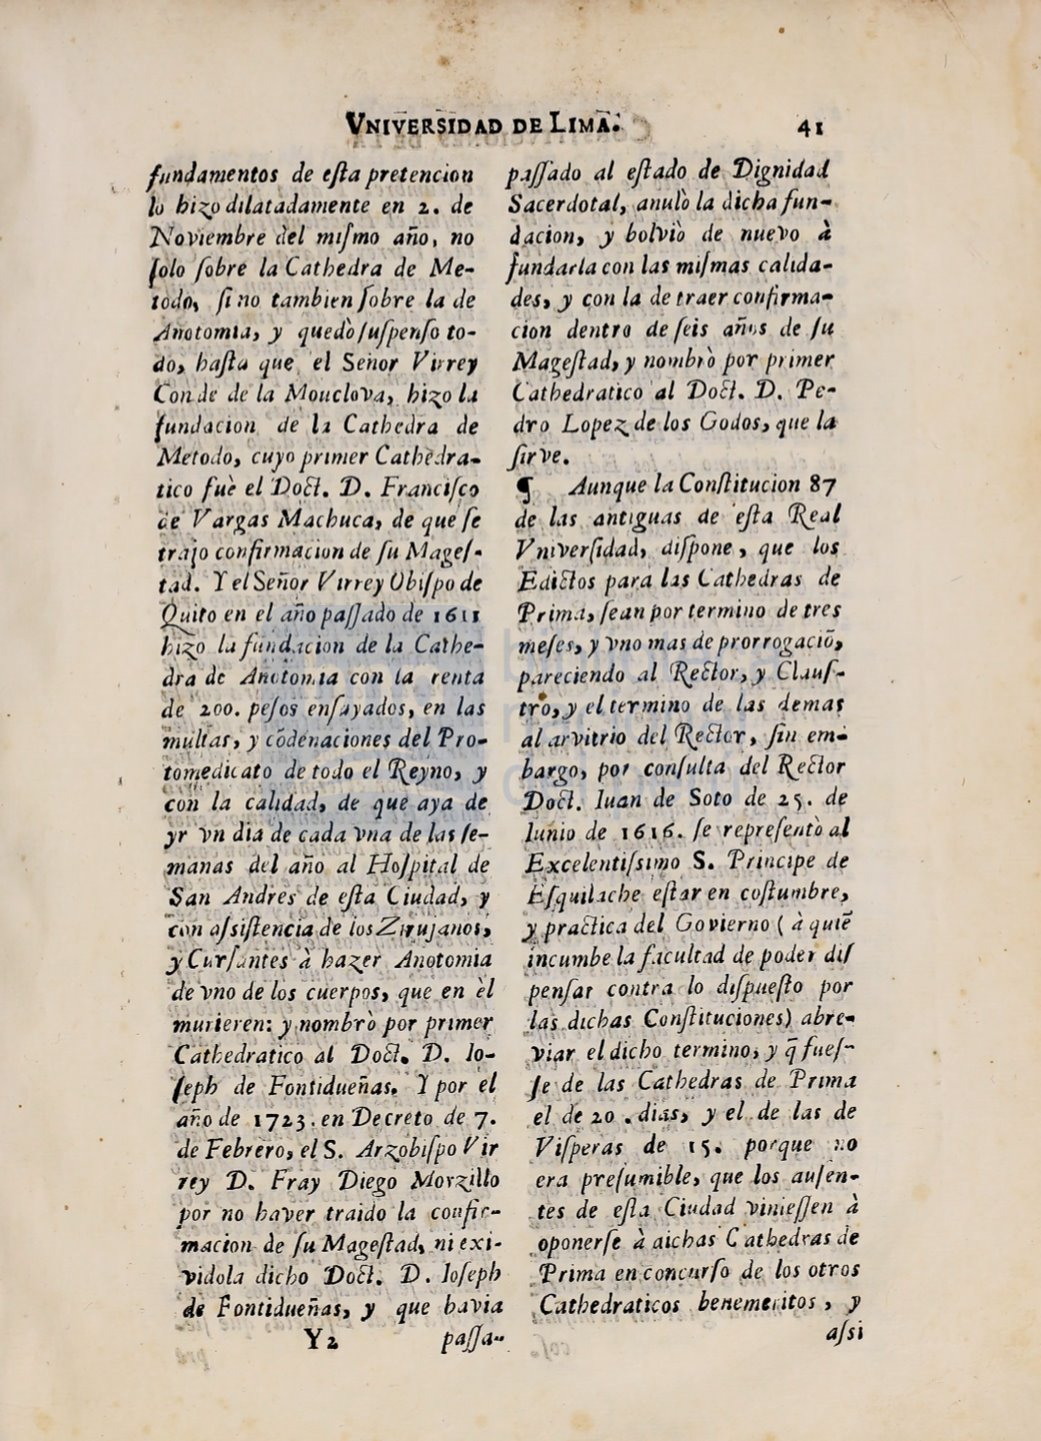 VNIVERSIDAD DE LIMA. 41
fundamentos de eſta pretencion
lo hizo dilatadamente en 2. de
Noviembre del miſmo año, no
ſolo ſobre la Cathedra de Me-
todo, ſi no tambien ſobre la de
Anotomia, y quedò ſuſpenſo to-
do, haſta que el Señor Virrey
Conde de la Mouclova, hizo la
fundacion de la Cathedra de
Metodo, cuyo primer Cathedra-
tico fuè el Doct. D. Franciſco
de Vargas Machuca, de que ſe
trajo confirmacion de ſu Mageſ-
tad. Y el Señor Virrey Obiſpo de
Quito en el año paſſado de 1611
hizo la fundacion de la Cathe-
dra de Anotomia con la renta
de 200. peſos enſayados, en las
multas, y cõdenaciones del Pro-
tomedicato de todo el Reyno, y
con la calidad, de que aya de
yr vn dia de cada vna de las ſe-
manas del año al Hoſpital de
San Andres de eſta Ciudad, y
con aſsiſtencia de los Zirujanos,
y Curſantes à hazer Anotomia
de vno de los cuerpos, que en èl
murieren: y nombrò por primer
Cathedratico al Doct. D. Io-
ſeph de Fontidueñas. Y por el
año de 1723. en Decreto de 7.
de Febrero, el S. Arzobiſpo Vir
rey D. Fray Diego Morzillo
por no haver traido la confir-
macion de ſu Mageſtad, ni exi-
vidola dicho Doct. D. Ioſeph
de Fontidueñas, y que havia
Y2 paſſa-
paſſado al eſtado de Dignidad
Sacerdotal, anulò la dicha fun-
dacion, y bolviò de nuevo à
fundarla con las miſmas calida-
des, y con la de traer confirma-
cion dentro de ſeis años de ſu
Mageſtad, y nombrò por primer
Cathedratico al Doct. D. Pe-
dro Lopez de los Godos, que la
ſirve.
¶ Aunque la Conſtitucion 87
de las antiguas de eſta Real
Vniverſidad, diſpone, que los
Edictos para las Cathedras de
Prima, ſean por termino de tres
meſes, y vno mas de prorrogaciõ,
pareciendo al Rector, y Clauſ-
tro, y el termino de las demas
al arvitrio del Rector, ſin em-
bargo, por conſulta del Rector
Doct. Iuan de Soto de 25. de
Iunio de 1616. ſe repreſentò al
Excelentiſsimo S. Principe de
Eſquilache eſtar en coſtumbre,
y practica del Govierno ( à quiẽ
incumbe la facultad de poder diſ
penſar contra lo diſpueſto por
las dichas Conſtituciones) abre-
viar el dicho termino, y q̃ fueſ-
ſe de las Cathedras de Prima
el de 20. dias, y el de las de
Viſperas de 15. porque no
era preſumible, que los auſen-
tes de eſta Ciudad vinieſſen à
oponerſe à dichas Cathedras de
Prima en concurſo de los otros
Cathedraticos benemeritos, y
aſsi